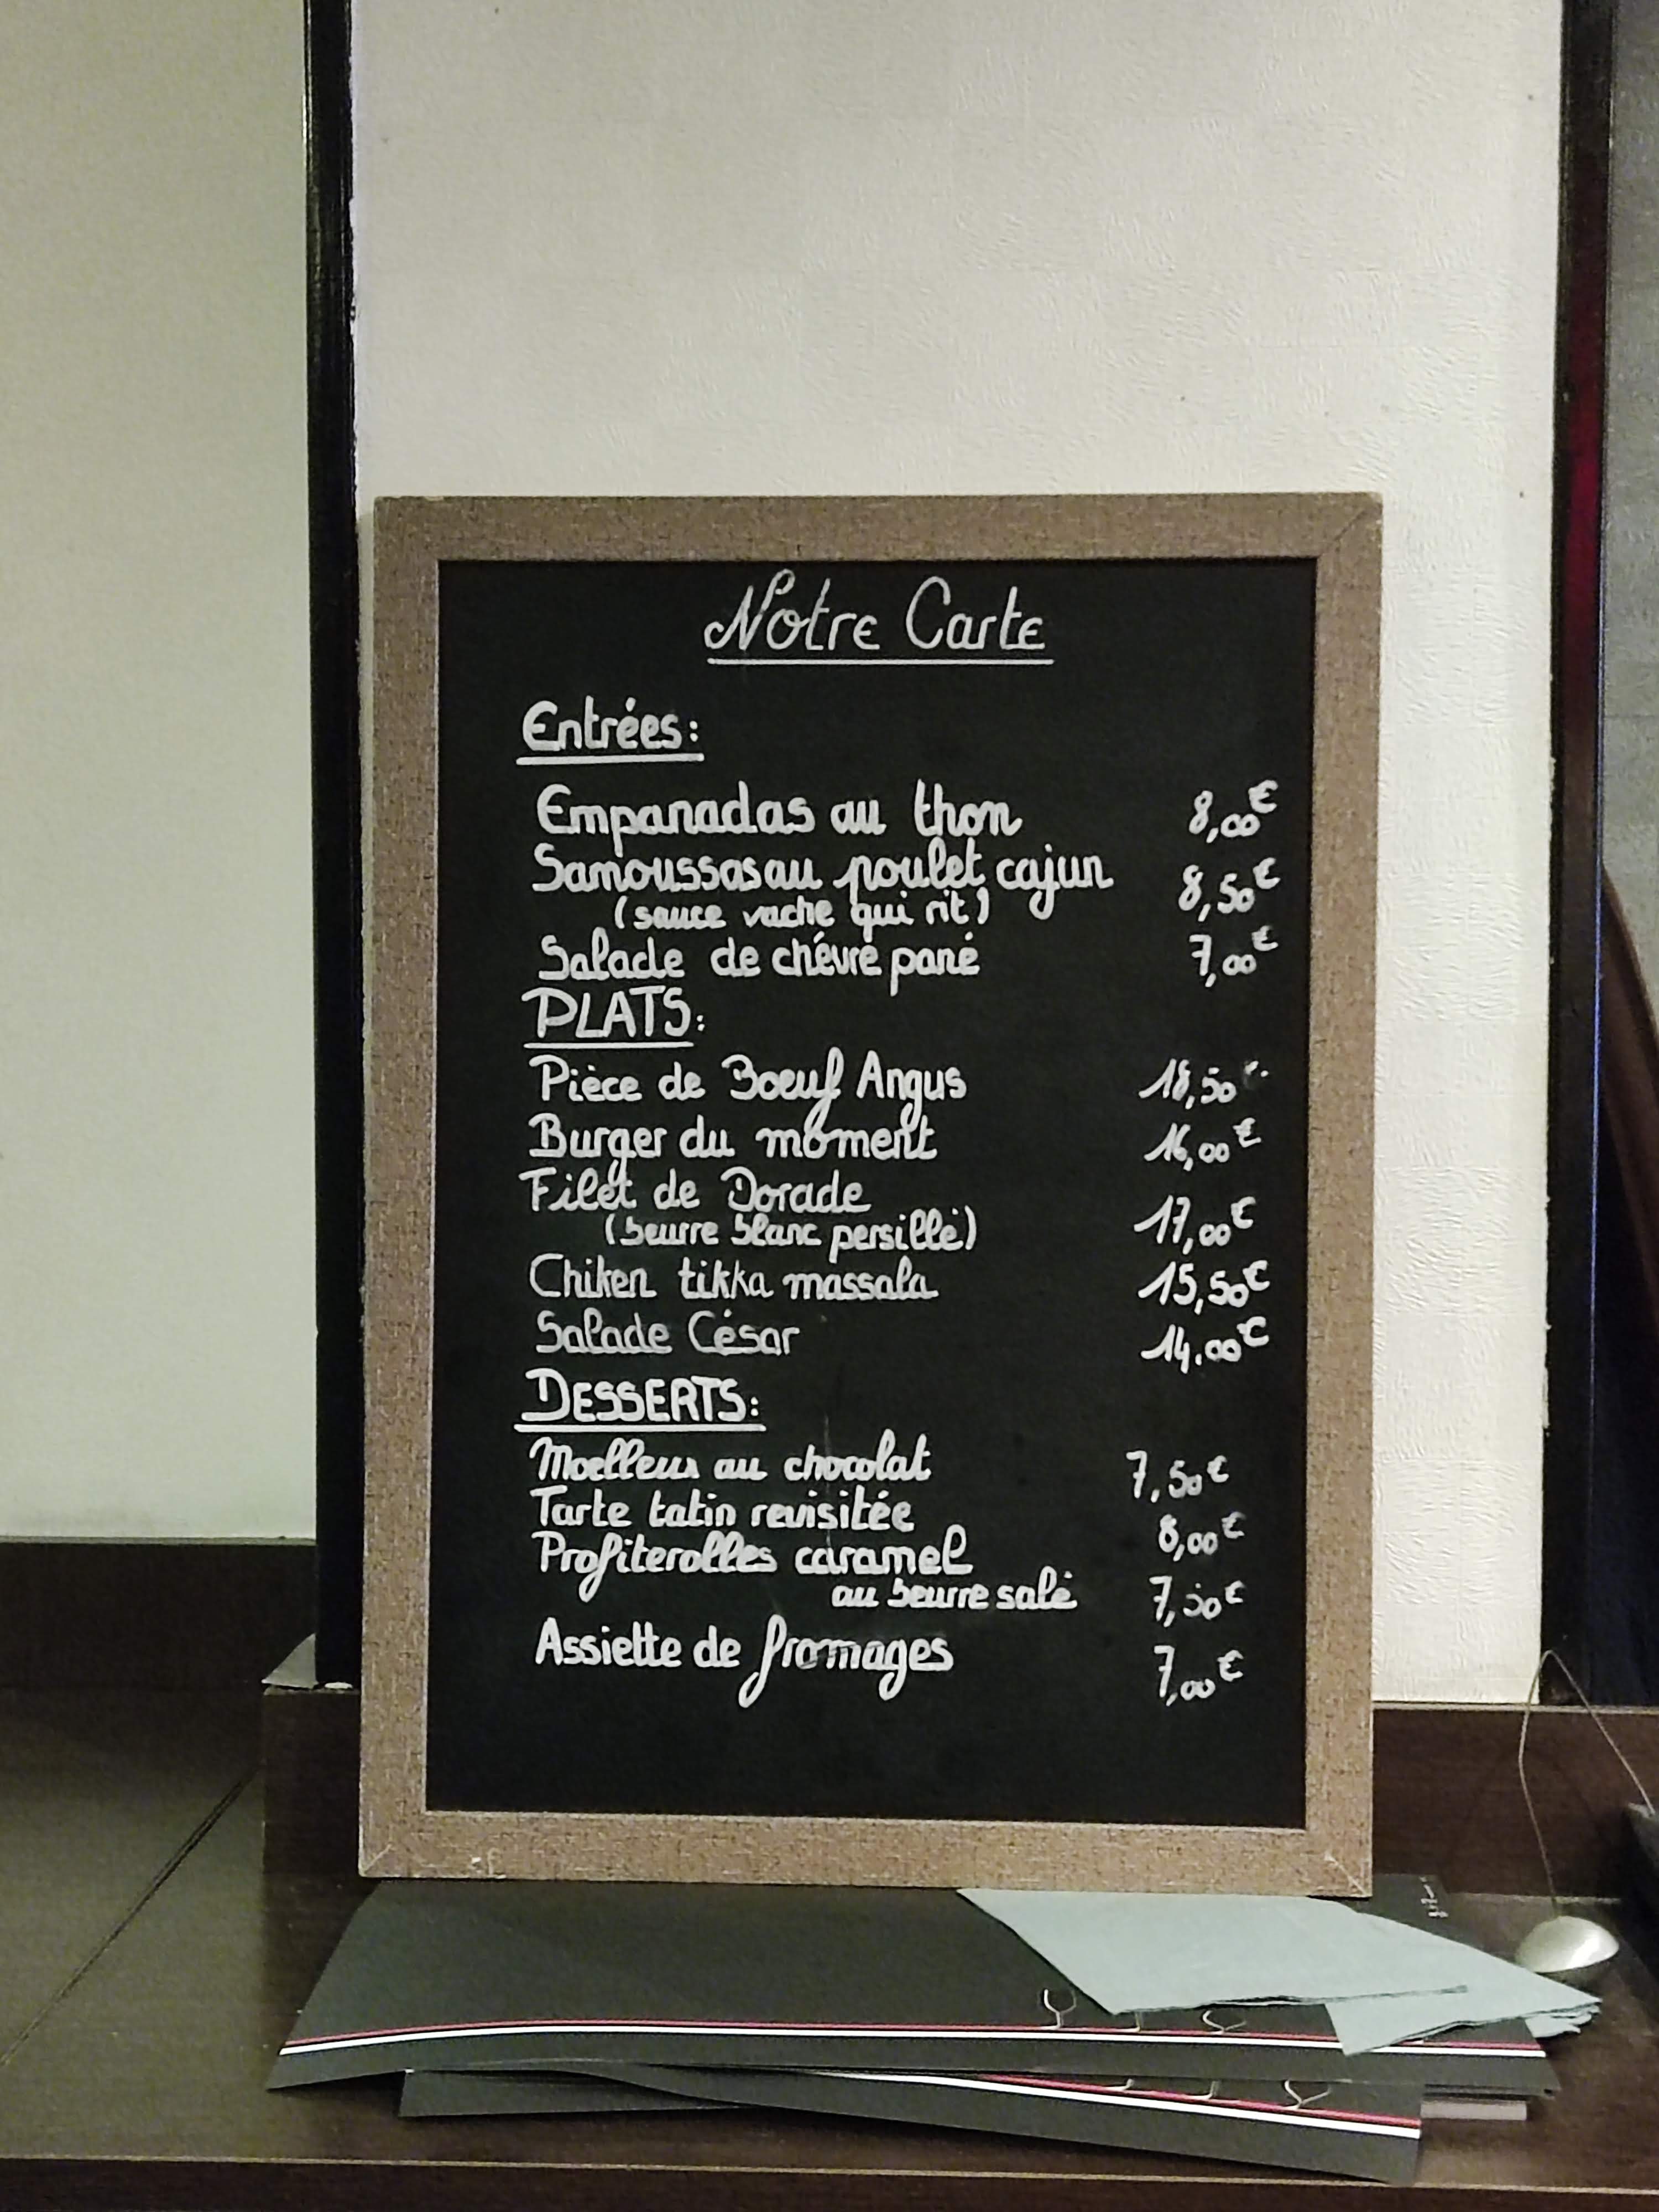 Notre Carte
Entrées:
Empanadas au thon 8,00€
Samoussas au poulet cajun 8,50€
(sauce vache qui rit)
Salade de chèvre pané 7,00€
PLATS:
Pièce de Boeuf Angus 18,50€
Burger du moment 16,00€
Filet de Dorade
(beurre blanc persillé) 17,00€
Chiken tikka massala 15,50€
Salade César 14,00€
DESSERTS:
Moelleux au chocolat 7,50€
Tarte tatin revisitée 8,00€
Profiterolles caramel
au beurre salé 7,50€
Assiette de fromages 7,00€